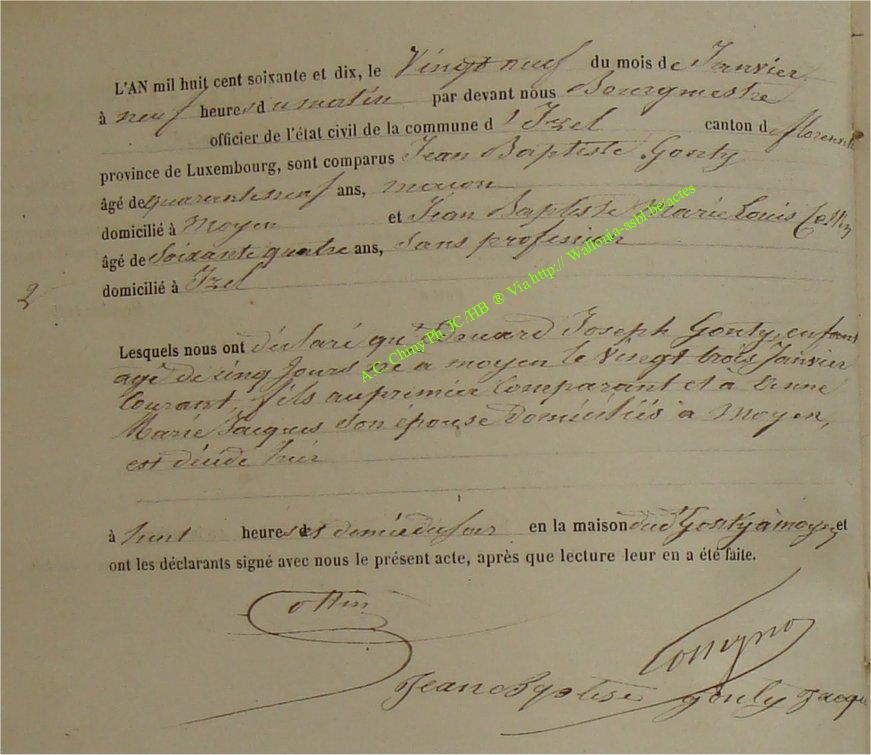 L'AN mil huit cent soixante et dix, le Vingt neuf du mois de Janvier
à neuf heures du matin par devant nous Bourgmestre
officier de l'état civil de la commune d'Izel canton de florenville
province de Luxembourg, sont comparus Jean Baptiste Gonty
âgé de quarante neuf ans, macon
domicilié à Moyen et Jean Baptiste Marie Louis
âgé de Soixante quatre ans, Sans profession
domicilié à Izel
2
Lesquels nous ont déclaré qu' Joseph Gonty, enfant
agé de cinq jours né a moyen le Vingt trois Janvier
Courant, fils au premier Comparant et à
Marie Jacques son épouse domiciliés à Moyen,
est décédé hier
à huit heures et demie du soir en la maison dud Gonty à moyen et
ont les déclarants signé avec nous le présent acte, après que lecture leur en a été faite.
ottin
Jean Bqptise Gonty
A.G. Chiny Ph JC/HB ® Via http:// Wallonia-asbl.be/actes